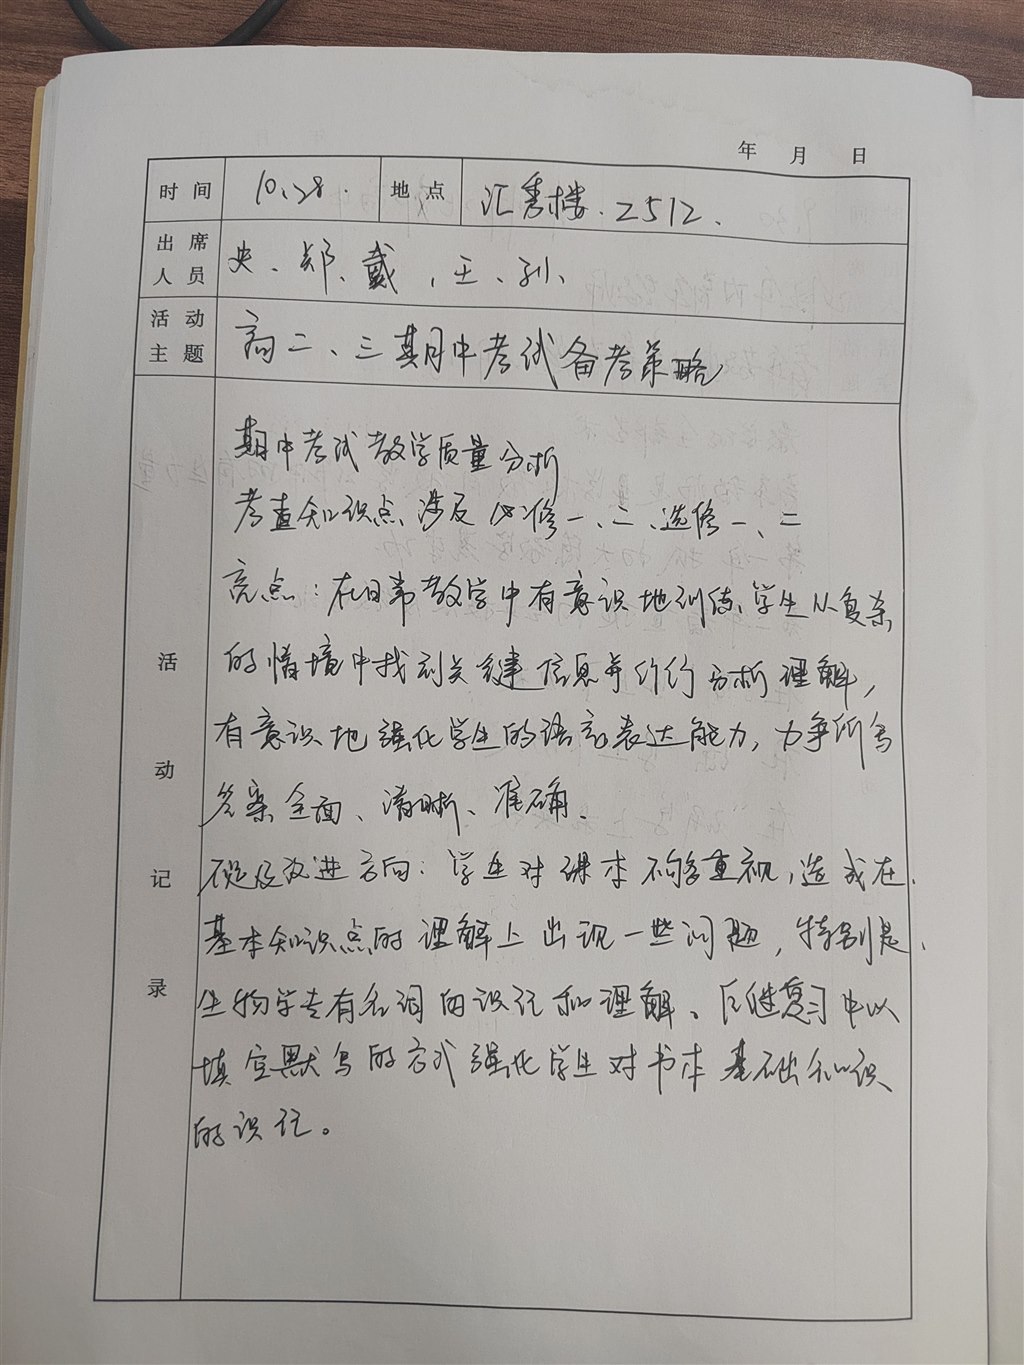 年 月 日
时间 10.28. 地点 汇秀楼.2512.
出席人员 史、郑、戴、王、孙、
活动主题 高二、三期中考试备考策略
活动记录
期中考试教学质量分析
考查知识点涉及必修一、二、选修一、二
亮点：在日常教学中有意识地训练学生从复杂
的情境中找到关键信息并进行分析理解，
有意识地强化学生的语言表达能力，力争所写
答案全面、清晰、准确。
不足及改进方向：学生对课本不够重视，造成在
基本知识点的理解上出现一些问题，特别是
生物学专有名词的识记和理解、后继复习中以
填空默写的方式强化学生对书本基础知识
的识记。